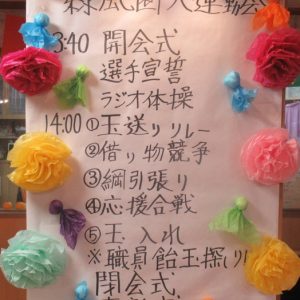 大運動会
13:40 開会式
選手宣誓
ラジオ体操
14:00 ①玉送りリレー
②借り物競争
③綱引張り
④応援合戦
⑤玉入れ
※職員飴玉探し!
閉会式